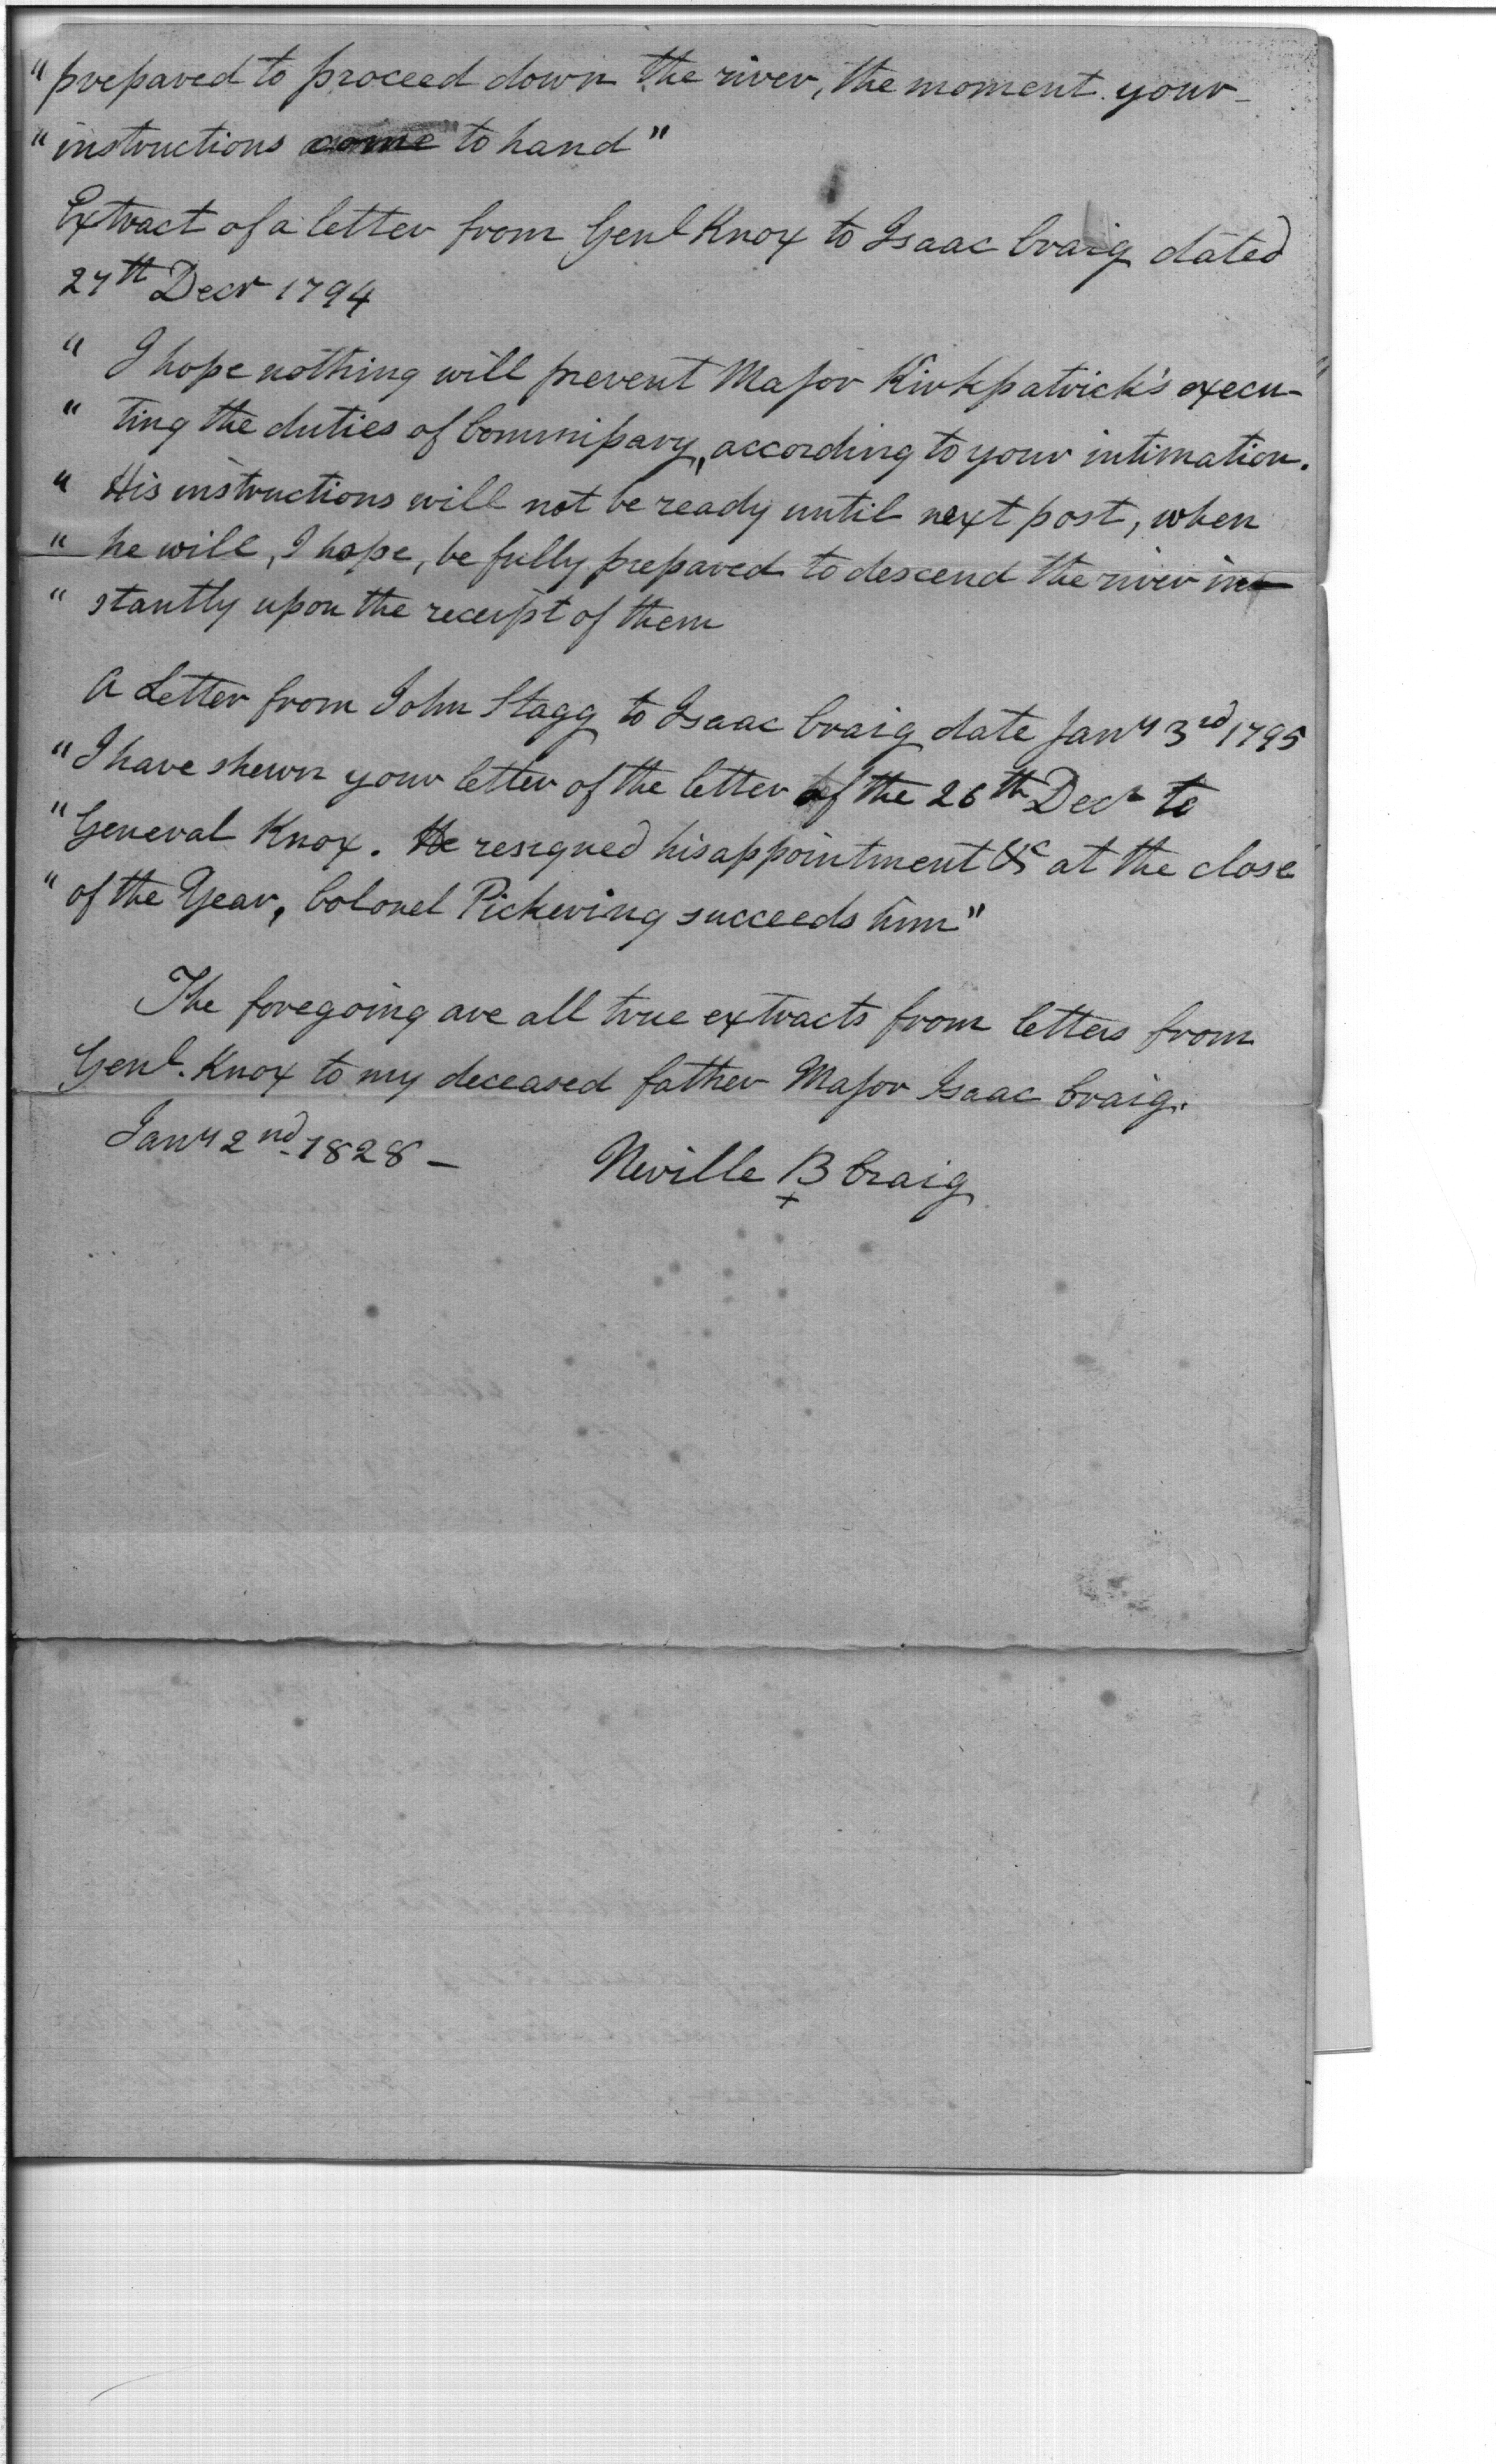 " prepared to proceed down the river, the moment your
" instructions come to hand"
Extract of a letter from Genl Knox to Isaac Craig dated
27th Decr 1794
" I hope nothing will prevent Major Kirkpatrick's execu-
" ting the duties of Commissary, according to your intimation.
" His instructions will not be ready until next post, when
" he will, I hope, be fully prepared to descend the river in-
" stantly upon the receipt of them
A Letter from John Stagg to Isaac Craig date Jany 3rd 1795
" I have shewn your letter of the letter of the 26th Decr to
" General Knox. He resigned his appointment &c at the close
" of the Year, Colonel Pickering succeeds him"
The foregoing are all true extracts from letters from
Genl. Knox to my deceased father Major Isaac Craig.
Jany 2nd 1828 - Neville B Craig
+